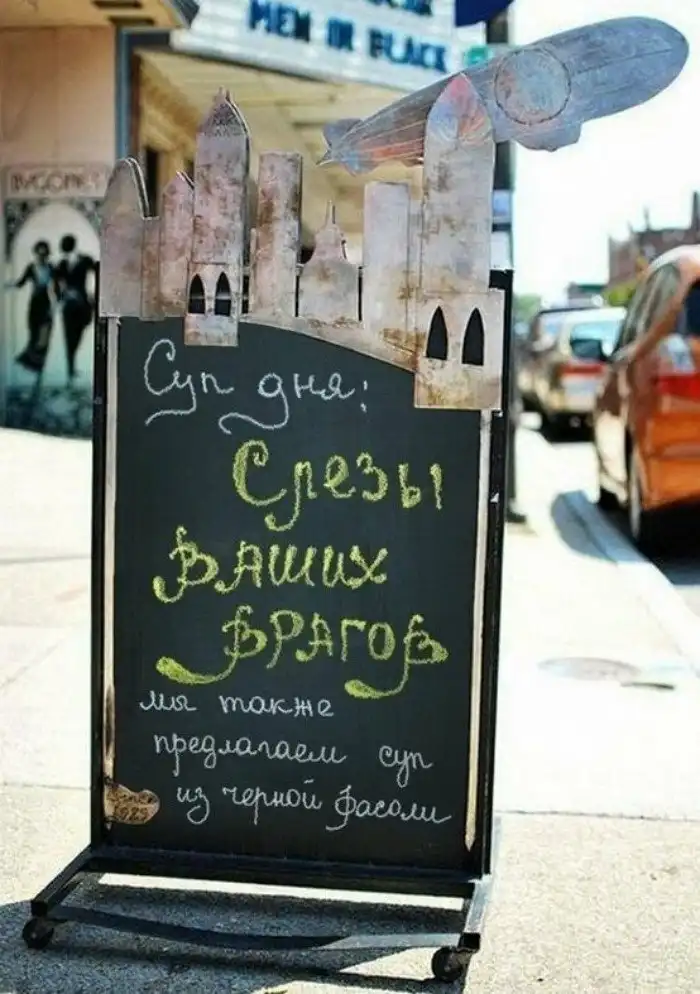 MEN IN BLACK
Суп дня:
Слезы
ваших
врагов
мы также
предлагаем суп
из черной фасоли